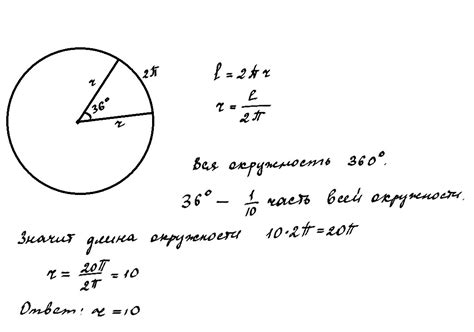 r
2π
36°
r
l = 2πr
r = l/2π
Вся окружность 360°.
36° – 1/10 часть всей окружности.
Значит длина окружности 10·2π=20π
r = 20π/2π = 10
Ответ: r = 10